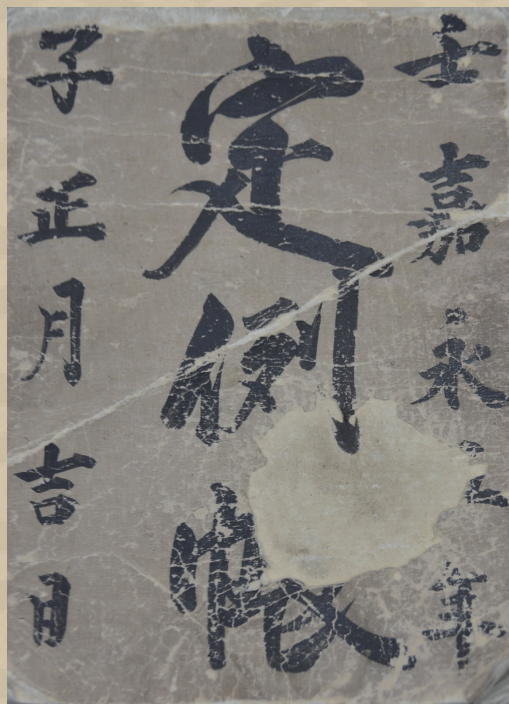 壬嘉永五年
定例帳
子正月吉日